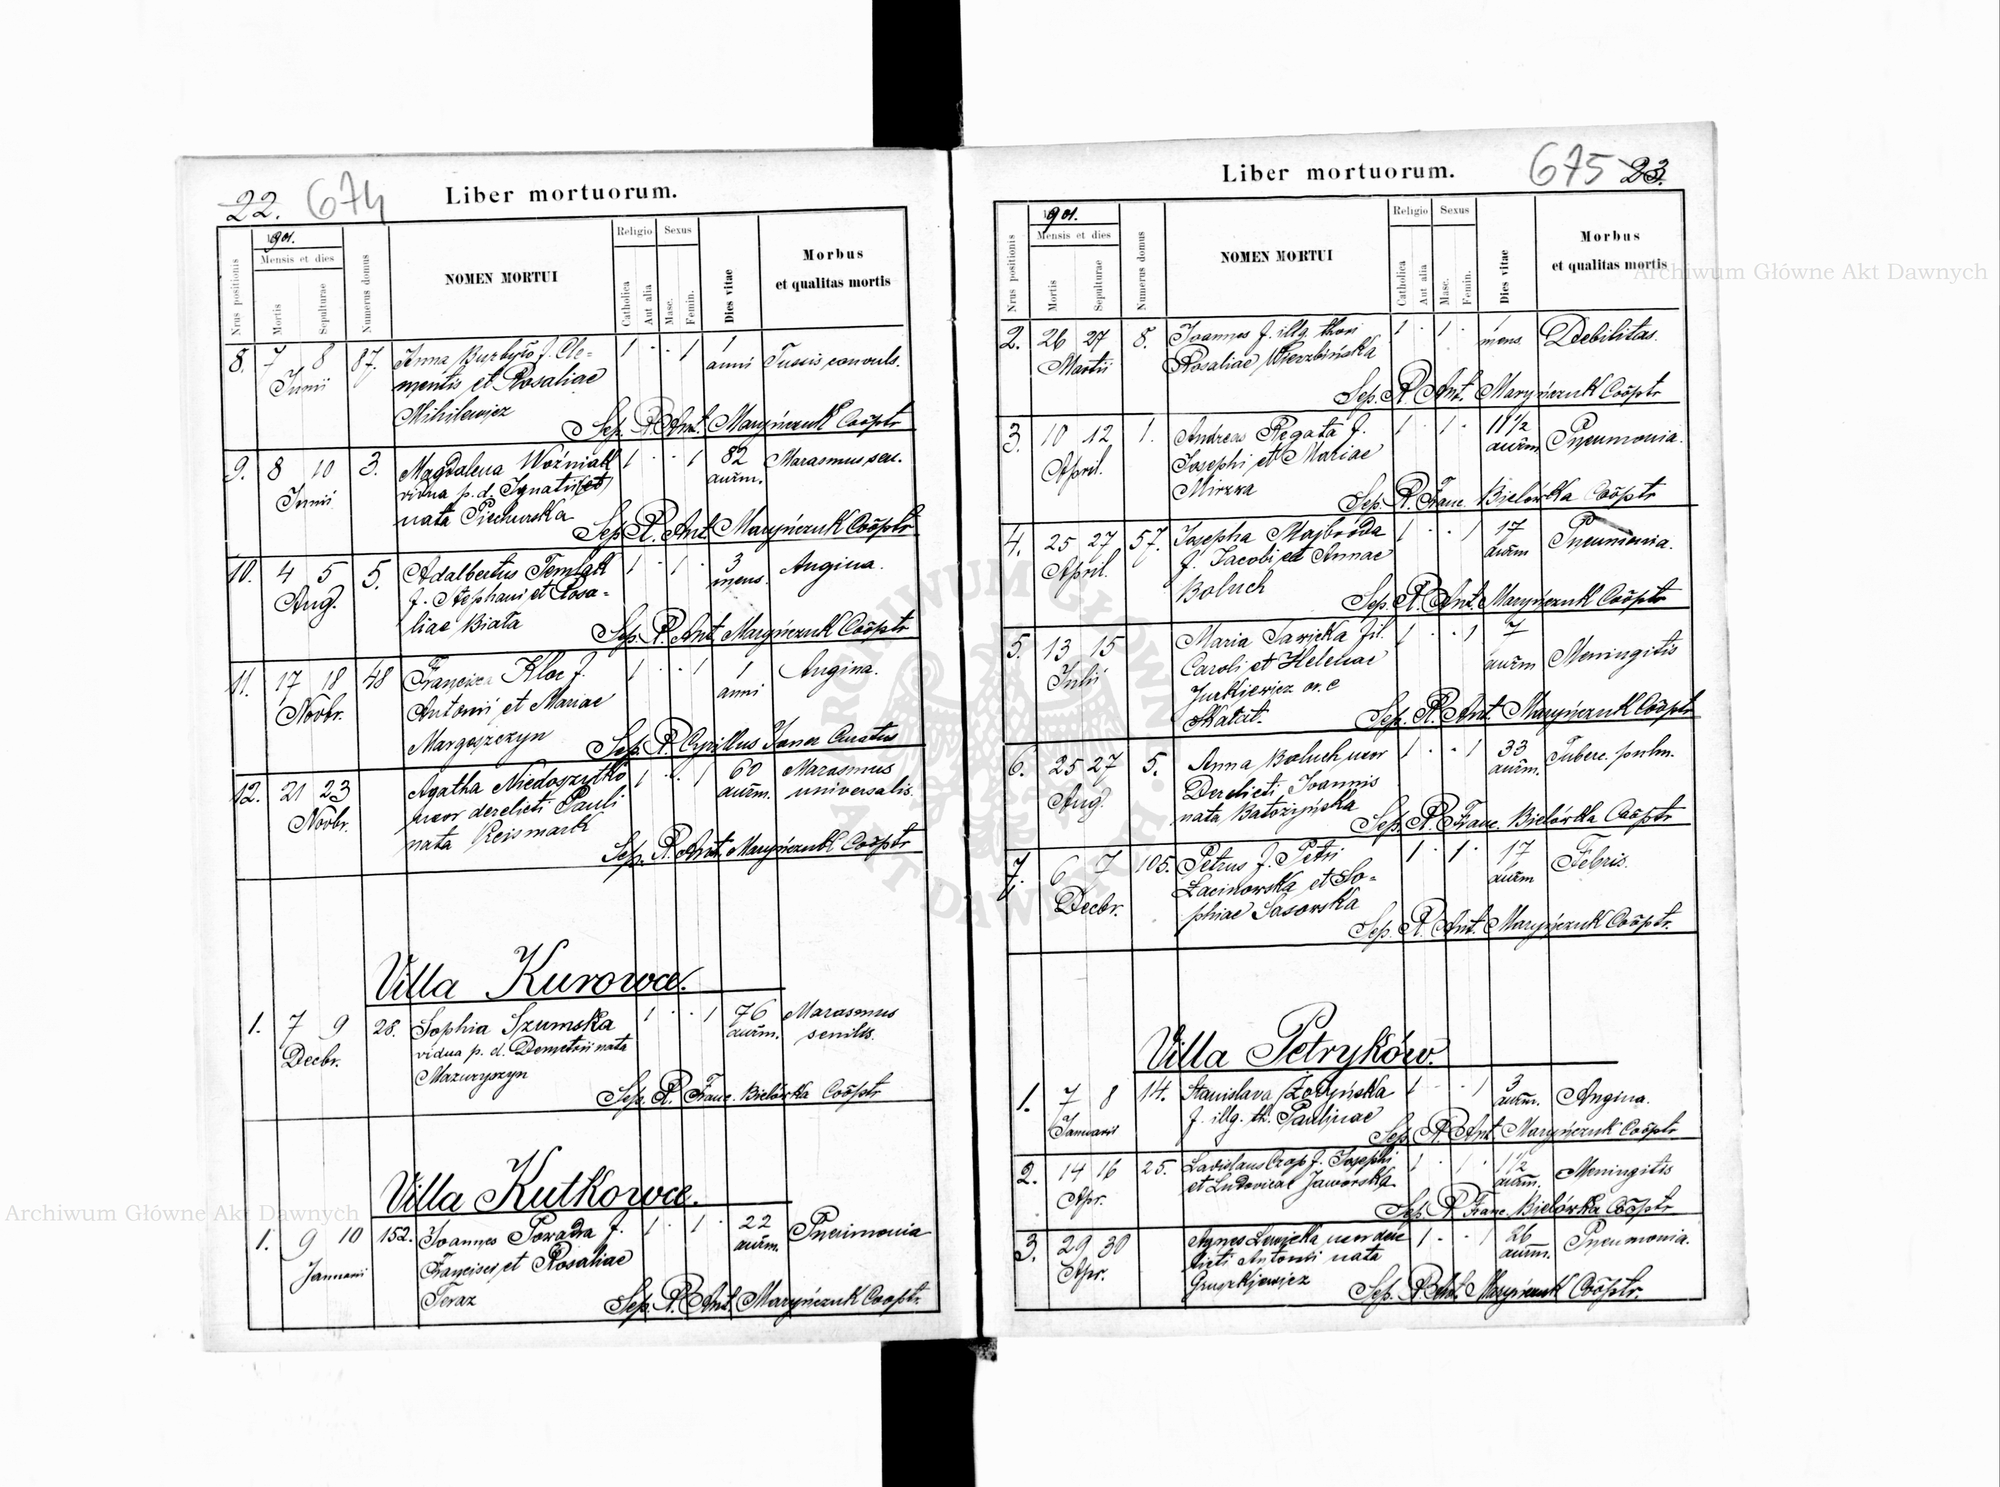 22. 674
Liber mortuorum.
Nrus positionis
1901.
Mensis et dies
Mortis
Sepulturae
Numerus domus
NOMEN MORTUI
Religio
Catholica
Aut alia
Sexus
Masc.
Femin.
Dies vitae
Morbus
et qualitas mortis
8. 7 8 87. Anna Burbyło f. Cle- 1 · · 1 1 Tussis convuls.
Junii mentis et Rosaliae anni
Mihilewicz Sep. R. Ant. Maryńczuk Coõptr
9. 8 10 3. Magdalena Woźniak 1 · · 1 82 Marasmus sen.
Junii vidua p. d. Ignatii et annr̄m.
nata Piechurska Sep. R. Ant. Maryńczuk Coõptr
10. 4 5 5. Adalbertus Temlak 1 · 1 · 3 Angina.
Aug. f. Stephani et Rosa- mens.
liae Biała Sep. R. Ant. Maryńczuk Coõptr
11. 17 18 48 Francisca Kloc f. 1 · · 1 1 Angina.
Novbr. Antonii et Mariae anni
Margoszczyn Sep. R. Cyrillus Jana Curatus
12. 21 23 Agatha Niedoszytko 1 · · 1 60 Marasmus
Novbr. uxor derelicti Pauli aur̄m. universalis.
nata Reismark Sep. R. Ant. Maryńczuk Coõptr
Villa Kurowce.
1. 7 9 28. Sophia Szumska 1 · · 1 76 Marasmus
Decbr. vidua p. d. Demetrii nata aur̄m. senilis.
Mazuryszyn
Sep. R. Franc. Bielówka Coõptr
Villa Kutkowce.
1. 9 10 152. Joannes Porada f. 1 · 1 · 22 Pneumonia
Januarii Francisci et Rosaliae aur̄m.
Teraz Sep. R. Ant. Maryńczuk Cooptr.
675 23.
Liber mortuorum.
Nrus positionis
1901.
Mensis et dies
Mortis
Sepulturae
Numerus domus
NOMEN MORTUI
Religio
Catholica
Aut alia
Sexus
Masc.
Femin.
Dies vitae
Morbus
et qualitas mortis
2. 26 27 8. Joannes f. illg. thori 1 · 1 · 1 Debilitas.
Martii Rosaliae Wierzbińska mens.
Sep. R. Ant. Maryńczuk Coõptr
3. 10 12 1. Andreas Regata f. 1 · 1 · 11 1/2 Pneumonia.
April. Josephi et Mariae aur̄m
Mirzwa Sep. R. Franc. Bielówka Coõptr
4. 25 27 57. Josepha Majbroda 1 · · 1 17 Pneumonia.
April. f. Jacobi et Annae aur̄m
Boluch Sep. R. Ant. Maryńczuk Coõptr
5. 13 15 Maria Sawicka fil. 1 · · 1 7 Meningitis
Julii Caroli et Helenae aur̄m
Jurkiewicz or. e
Matat. Sep. R. Ant. Maryńczuk Coõptr
6. 25 27 5. Anna Boluch uxor 1 · · 1 33 Tuberc. pulm.
Aug. Derelicti Joannis aur̄m.
nata Batożyńska Sep. R. Franc. Bielówka Coõptr
7. 6 7 105. Petrus f. Petri 1 · 1 · 17 Febris.
Decbr. Łacinowska et So- aur̄m
phiae Sasowska
Sep. R. Ant. Maryńczuk Coõptr.
Villa Petryków.
1. 7 8 14. Stanislava Zołyńska 1 · · 1 3 Angina.
Januarii f. illg. th. Paulinae aur̄m.
Sep. R. Ant. Maryńczuk Coõptr
2. 14 16 25. Ladislaus Czop f. Josephi 1 · 1 · 1 1/2 Meningitis
Apr. et Ludovicae Jaworska aur̄m.
Sep. R. Franc. Bielówka Coõptr
3. 29 30 Agnes Lewicka uxor dere 1 · · 1 26 Pneumonia.
Apr. licti Antonii nata aur̄m.
Gruszkiewicz Sep. R. Ant. Maryńczuk Coõptr.
Archiwum Główne Akt Dawnych
Archiwum Główne Akt Dawnych
ARCHIWUM GŁÓWNE AKT DAWNYCH